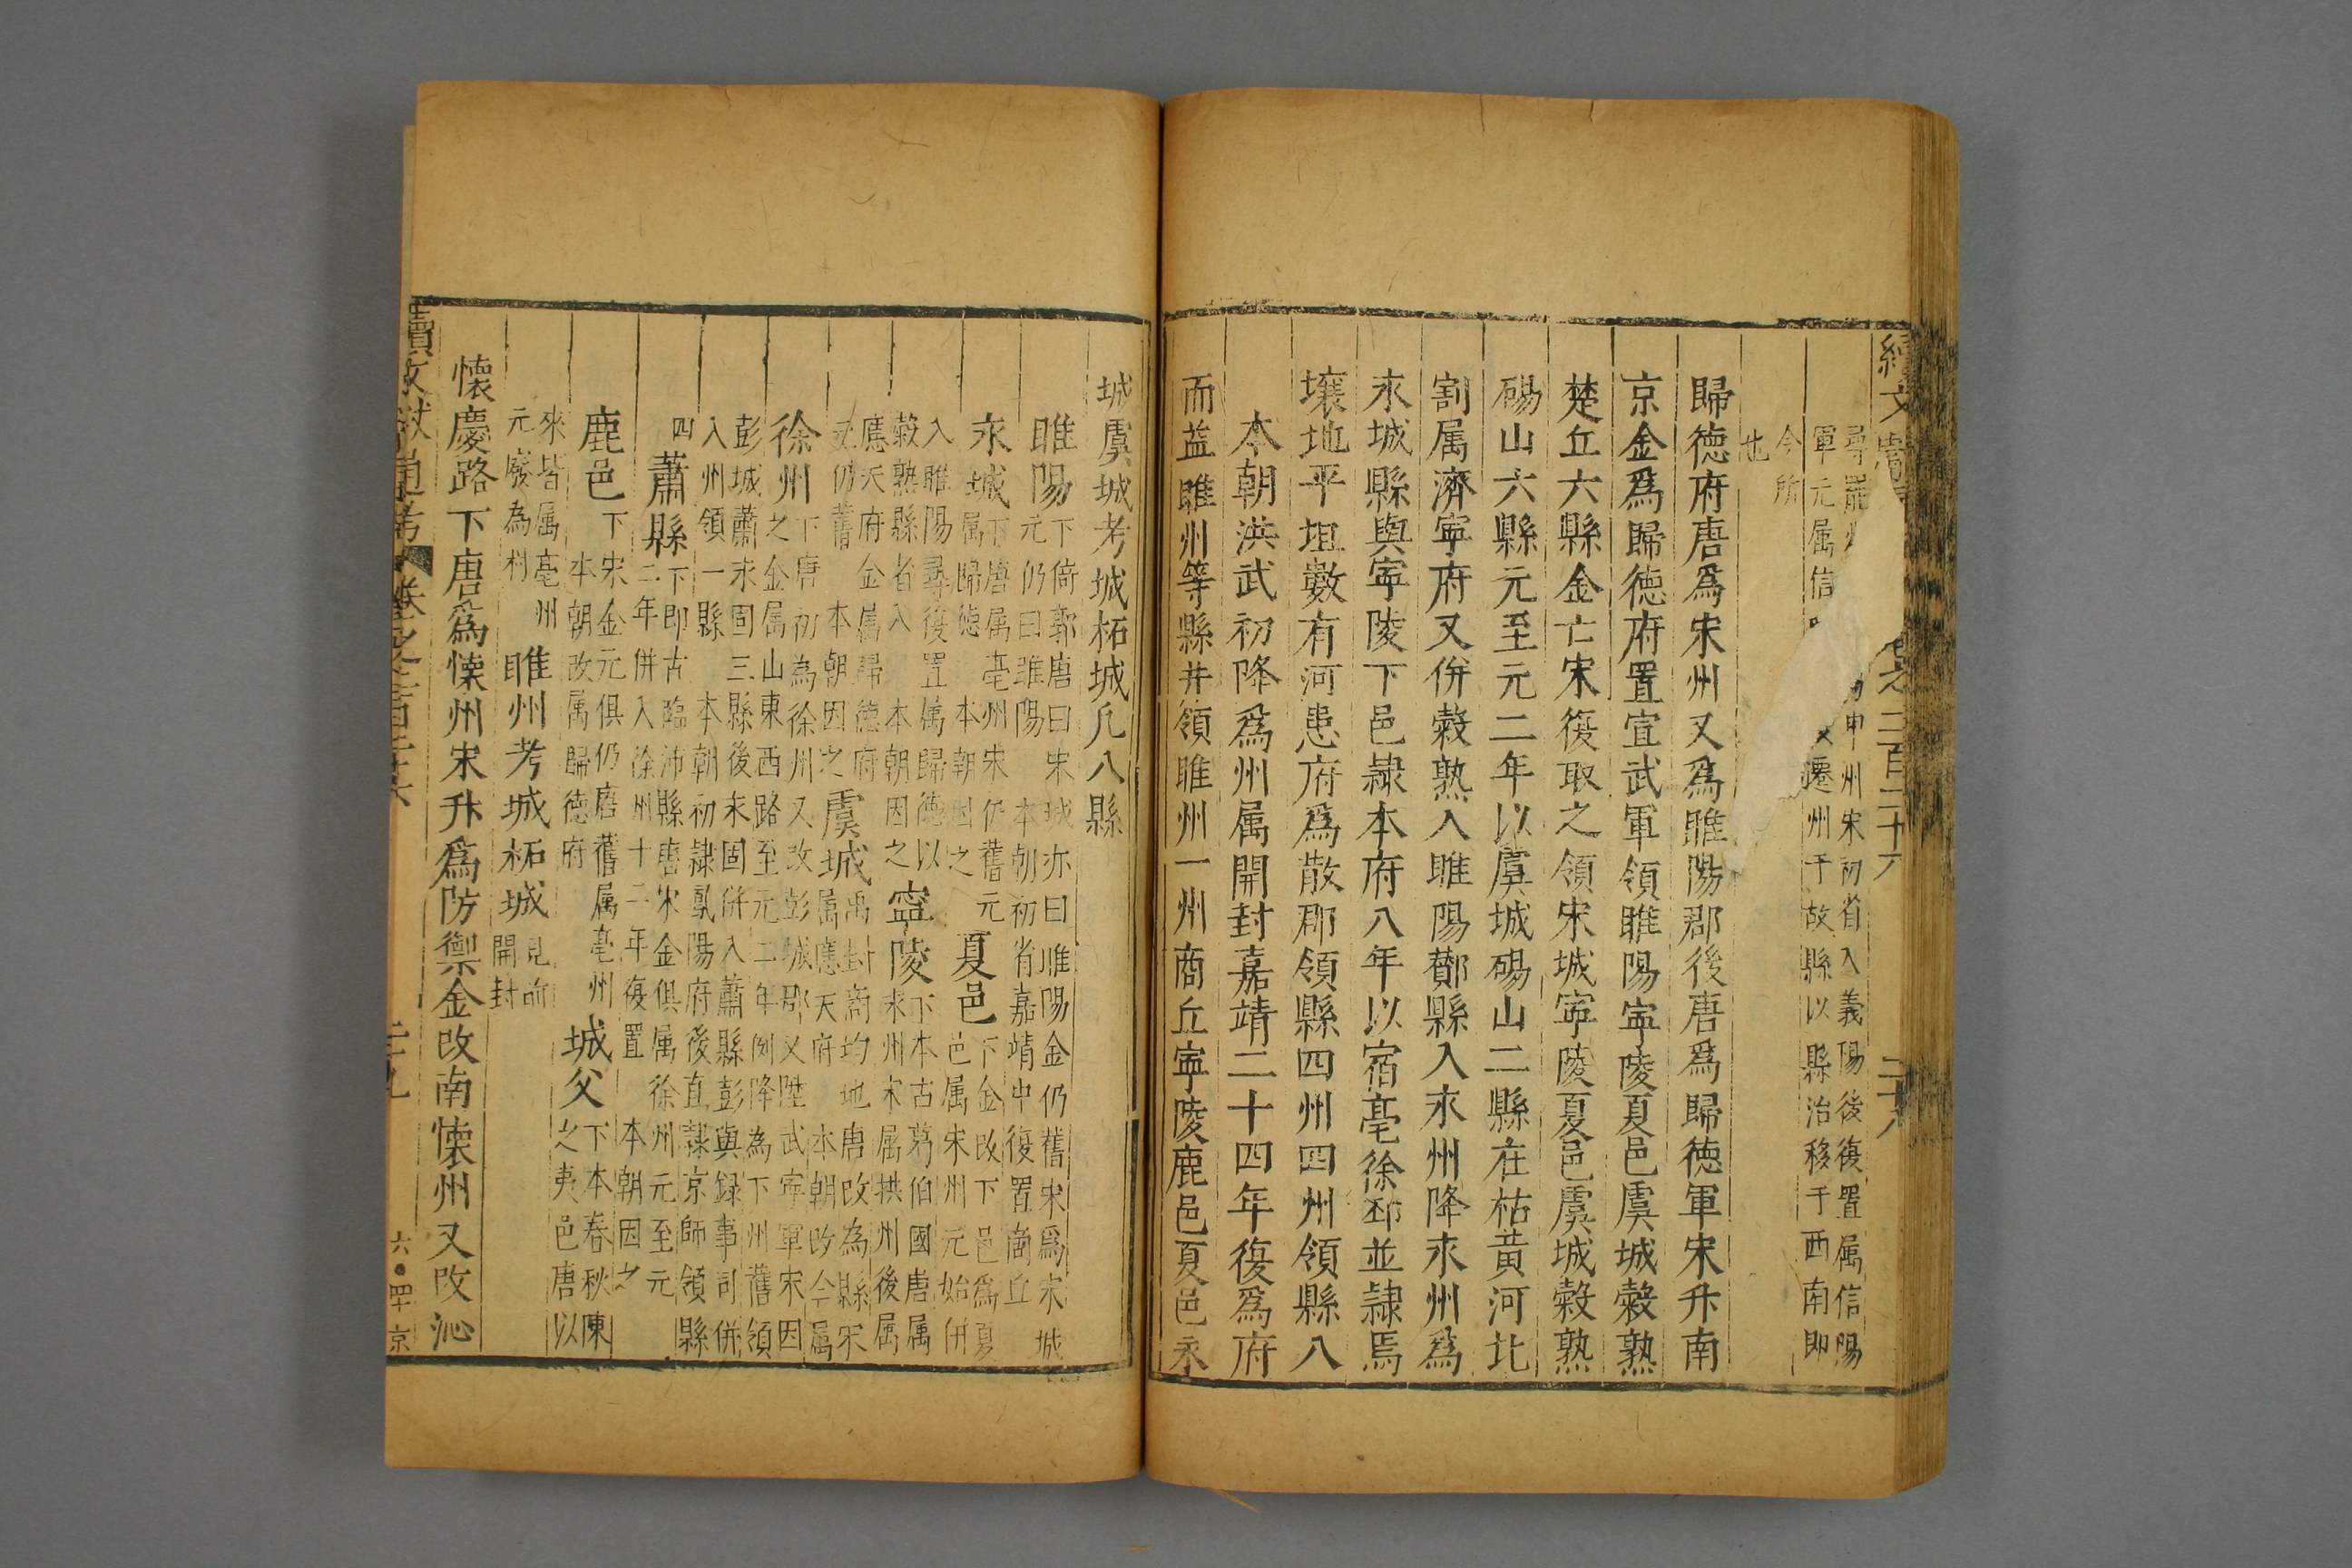 續文獻
卷之二百二十六
二十八
申州宋初省入義陽後復置属信陽
軍元属信
遷州于故縣以縣治移于西南即
今所
也
歸徳府唐爲宋州又爲睢陽郡後唐爲歸徳軍宋升南
京金爲歸徳府置宣武軍領睢陽寧陵夏邑虞城穀熟
楚丘六縣金亡宋復取之領宋城寧陵夏邑虞城穀熟
碭山六縣元至元二年以虞城碭山二縣在枯黄河北
割属濟寧府又併穀熟入睢陽酇縣入永州降永州爲
永城縣與寧陵下邑隷本府八年以宿亳徐邳並隷焉
壤地平坦數有河患府爲散郡領縣四州四州領縣八
本朝洪武初降爲州属開封嘉靖二十四年復爲府
而益睢州等縣并領睢州一州商丘寧陵鹿邑夏邑永
城虞城考城柘城凡八縣
睢陽
下倚郭唐曰宋城亦曰睢陽金仍舊宋爲宋城
元仍曰睢陽 本朝初省嘉靖中復置商丘
永城
下唐属亳州宋仍舊元
属歸德 本朝因之
夏邑
下金改下邑爲夏
邑属宋州元始併
入睢陽尋復置属歸德以
穀熟縣省入 本朝因之
寧陵
下本古葛伯國唐属
宋州宋属拱州後属
應天府金属歸德府
元仍舊 本朝因之
虞城
禹封商均地唐改為縣宋
属應天府 本朝改今属
徐州
下唐初為徐州又改彭城郡又陞武寧軍宋因
之金属山東西路至元二年例降為下州舊領
彭城蕭永固三縣後永固併入蕭縣彭與録事司併
入州領一縣 本朝初隷鳯陽府後直隷京師領縣
四
蕭縣
下即古臨沛縣唐宋金俱属徐州元至元
二年併入徐州十二年復置 本朝因之
鹿邑
下宋金元俱仍唐舊属亳州
本朝改属歸德府
城父
下本春秋陳
之夷邑唐以
來皆属亳州
元廢為村
睢州考城柘城
見前
開封
懷慶路下唐爲懷州宋升爲防禦金改南懷州又改沁
續文獻通考
卷之二百二十六
二十九